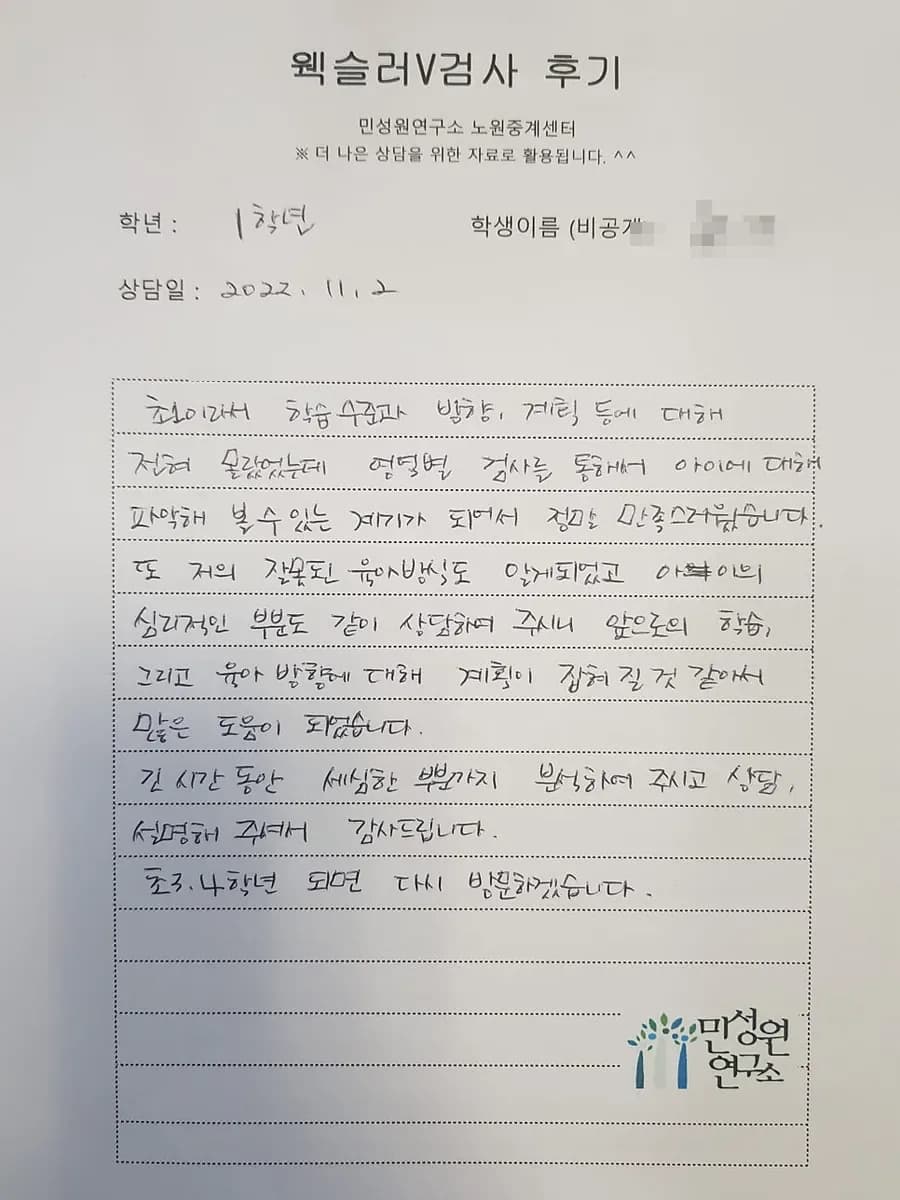 웩슬러V검사 후기
민성원연구소 노원중계센터
※ 더 나은 상담을 위한 자료로 활용됩니다. ^^
학년 : 1학년 학생이름 (비공개
상담일 : 2022. 11. 2
초1이라서 학습수준과 방향, 계획 등에 대해
전혀 몰랐었는데 영역별 검사를 통해서 아이에 대해
파악해 볼 수 있는 계기가 되어서 정말 만족스러웠습니다.
또 저의 잘못된 육아방식도 알게되었고 아이의
심리적인 부분도 같이 상담하여 주시니 앞으로의 학습,
그리고 육아 방향에 대해 계획이 잡혀 질 것 같아서
많은 도움이 되었습니다.
긴 시간 동안 세심한 부분까지 분석하여 주시고 상담,
설명해 주셔서 감사드립니다.
초3.4학년 되면 다시 방문하겠습니다.
민성원
연구소